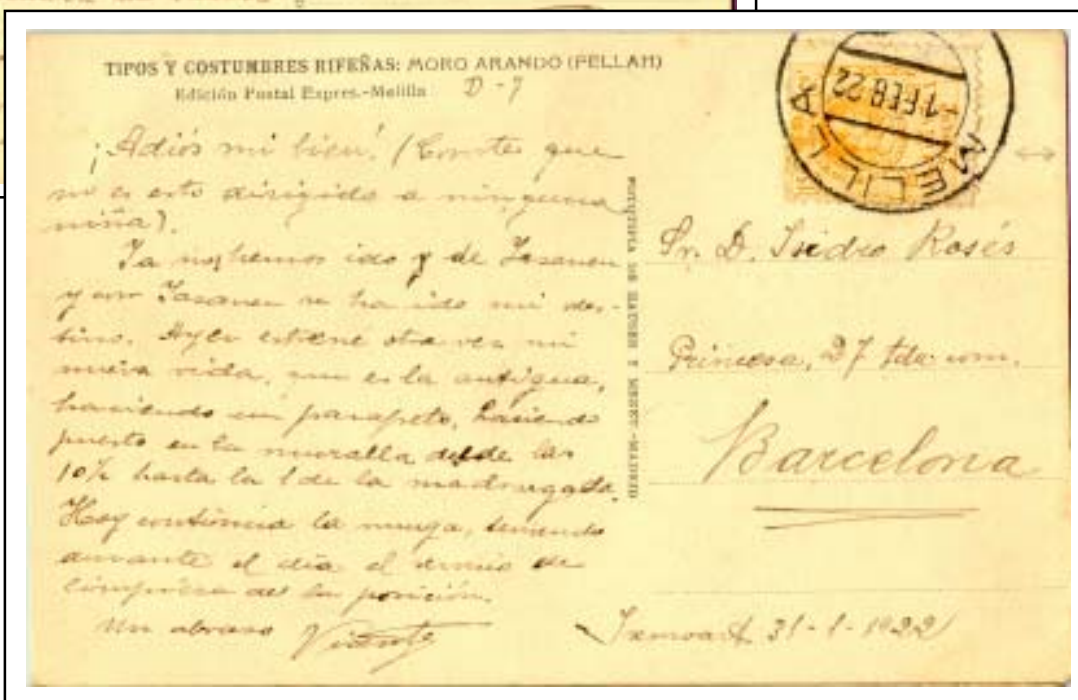 TIPOS Y COSTUMBRES RIFEÑAS: MORO ARANDO (FELLAH)
Edición Postal Expres.-Melilla D-7
¡Adiós mi bien! (Conste que
no es esto dirigido a ninguna
niña).
Ya nos hemos ido y de Tasanen
y con Tasanen se ha ido mi des-
tino. Ayer estrené otra vez mi
nueva vida, que es la antigua,
haciendo un parapeto, haciendo
puesto en la muralla desde las
10½ hasta la 1 de la madrugada.
Hoy continúa la murga, teniendo
durante el día el servicio de
limpieza de la posición.
Un abrazo Vicente
FOTOTIPIA DE HAUSER Y MENET.-MADRID
MELILLA
-1 FEB 22
Sr. D. Isidro Rosés
Princesa, 27 tda. com.
Barcelona
31-1-1922